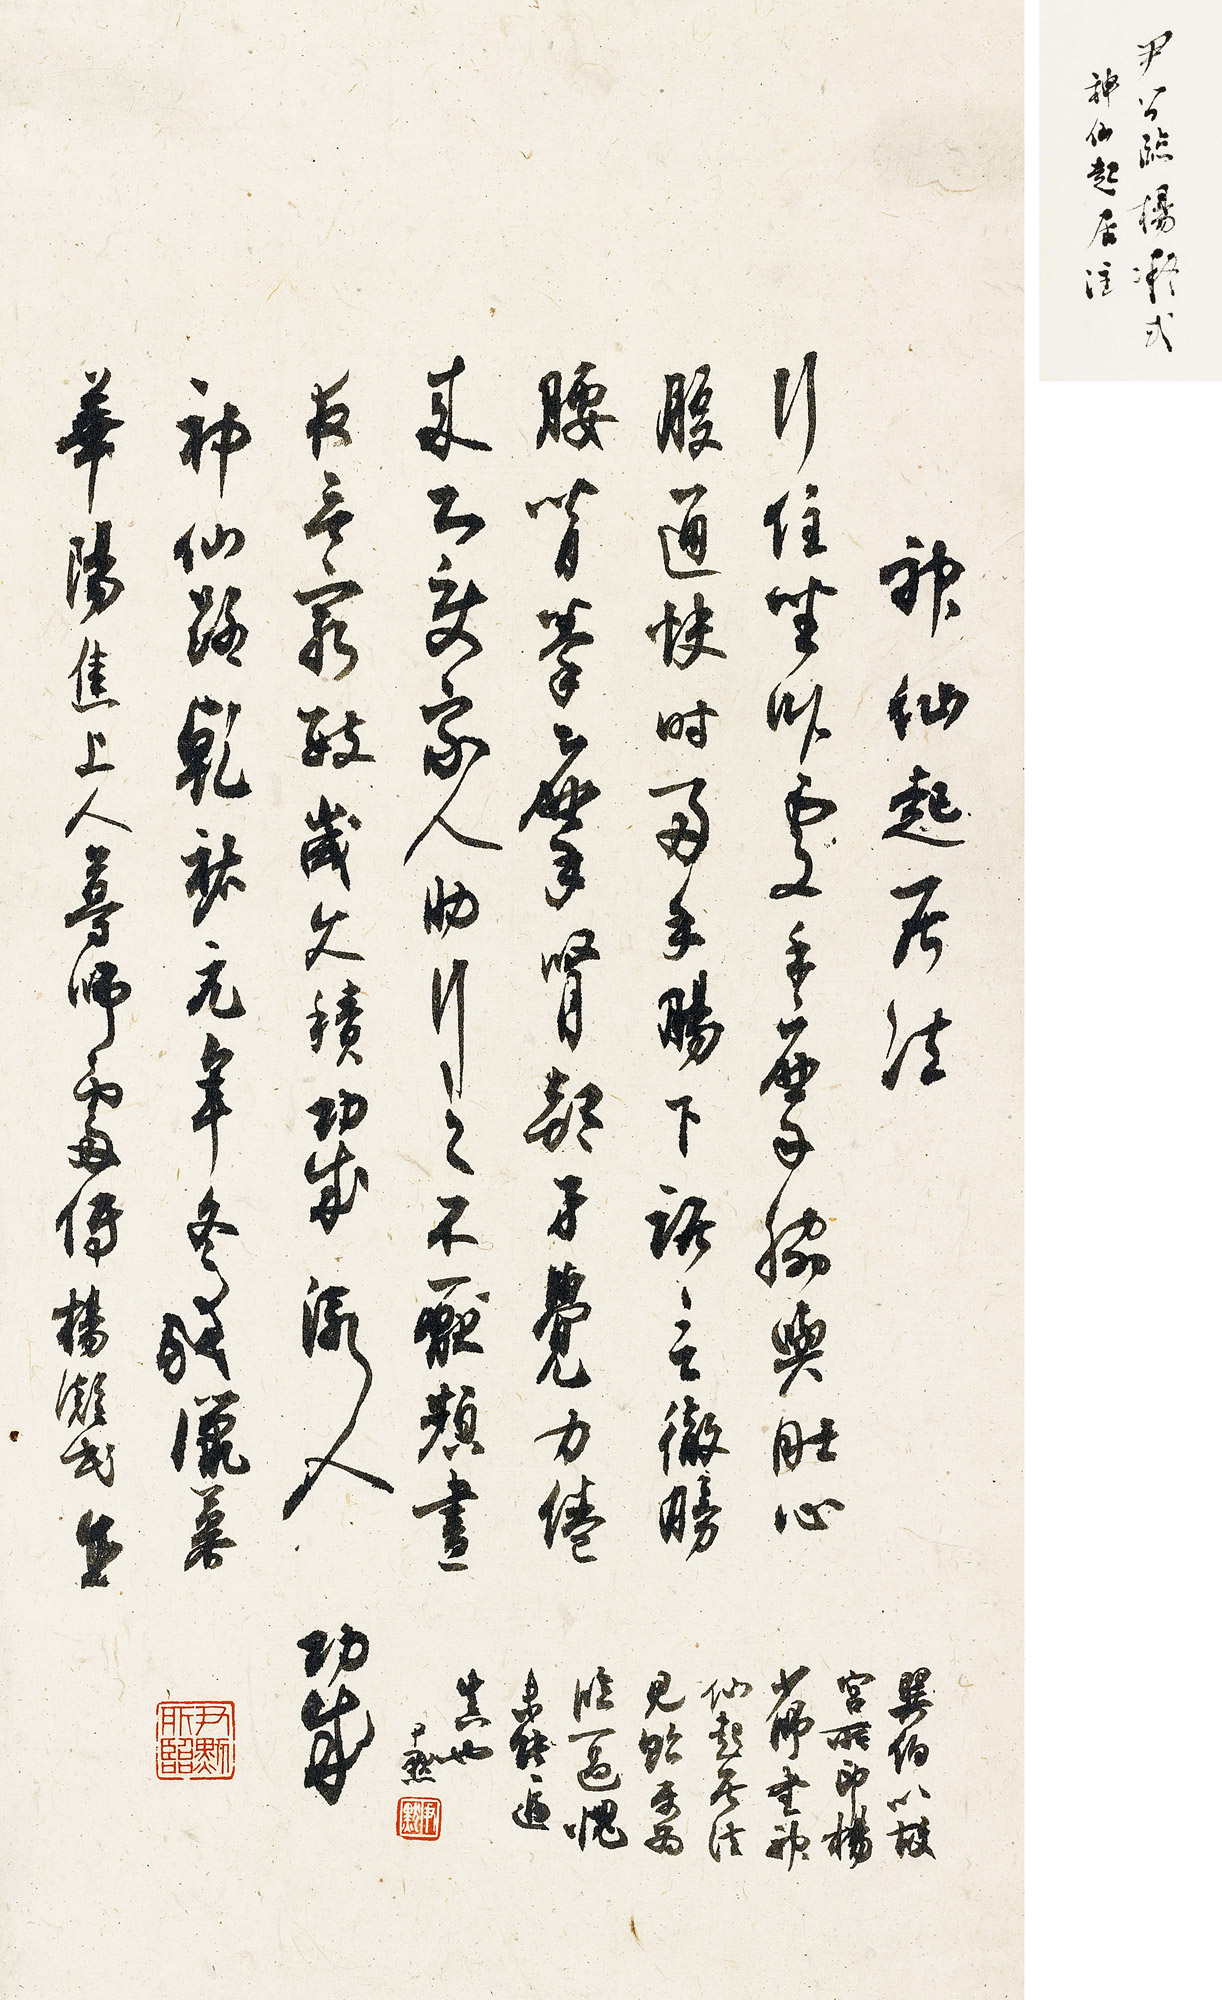 尹公臨楊凝式
神仙起居法
神仙起居法
行住坐卧處手摩脇與肚心
腹通快時兩手腸下踞踞之徹膀
腰背拳拳摩腎部才覺力倦
來即使家人助行之不厭頻晝
夜無窮數歲久積功成漸入
神仙路乾祐元年冬殘臘暮
華陽焦上人尊師處傳楊凝式 生
功成
巽伯以故
宮所印楊
少師書神
仙起居法
見貽屬為
臨一過愧
未能逼
真也
尹默
尹默所臨
尹默